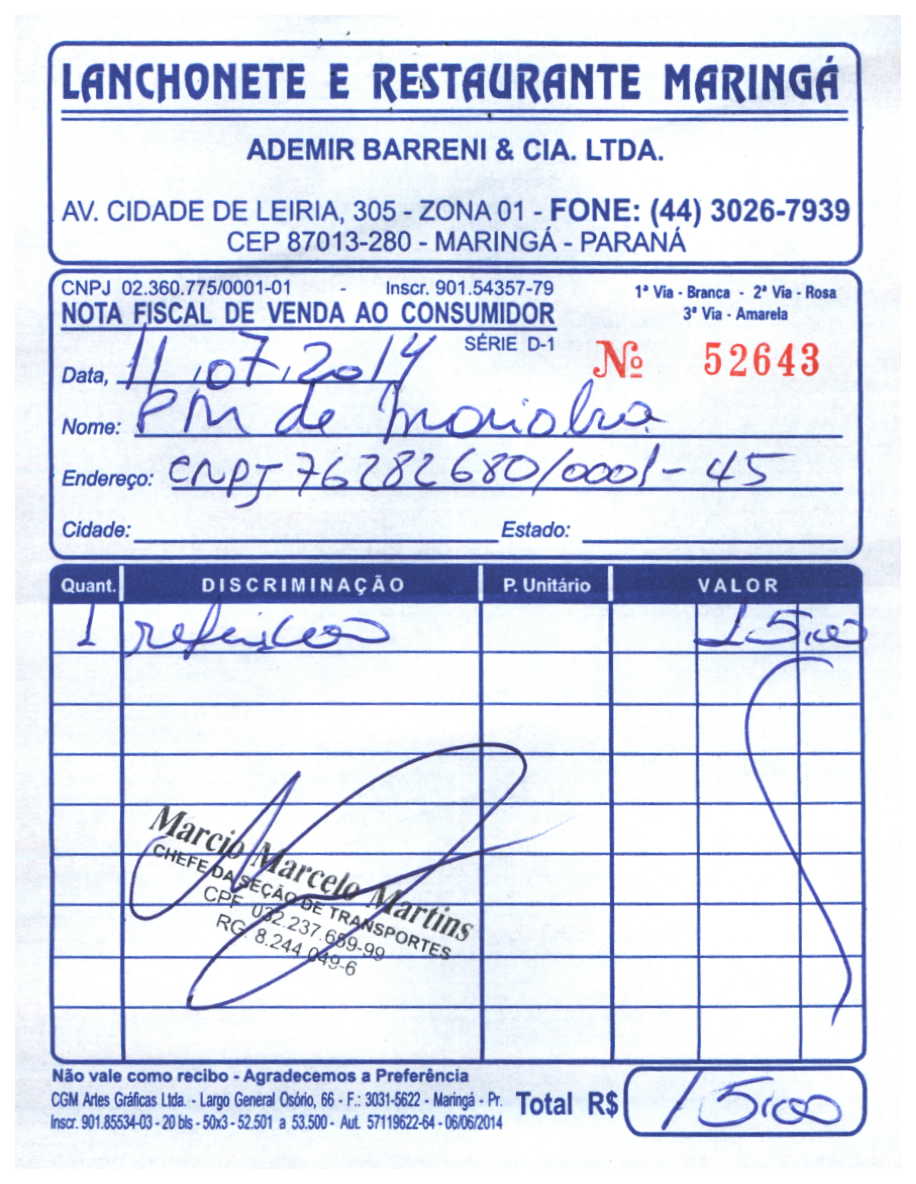 LANCHONETE E RESTAURANTE MARINGÁ
ADEMIR BARRENI & CIA. LTDA.
AV. CIDADE DE LEIRIA, 305 - ZONA 01 - FONE: (44) 3026-7939
CEP 87013-280 - MARINGÁ - PARANÁ
CNPJ 02.360.775/0001-01 Inscr. 901.54357-79
1ª Via - Branca - 2ª Via - Rosa
3ª Via - Amarela
NOTA FISCAL DE VENDA AO CONSUMIDOR
SÉRIE D-1
Nº 52643
Data, 11.07.2014
Nome: PM de Marialva
Endereço: CNPJ 76282680/0001-45
Cidade: Estado:
Quant. DISCRIMINAÇÃO P. Unitário VALOR
1 refeição 15,00
Marcio Marcelo Martins
CHEFE DA SEÇÃO DE TRANSPORTES
CPF. 032.237.659-99
RG. 8.244.049-6
Não vale como recibo - Agradecemos a Preferência
CGM Artes Gráficas Ltda. - Largo General Osório, 66 - F.: 3031-5622 - Maringá - Pr.
Inscr. 901.85534-03 - 20 bls - 50x3 - 52.501 a 53.500 - Aut. 57119622-64 - 06/06/2014
Total R$ 15,00